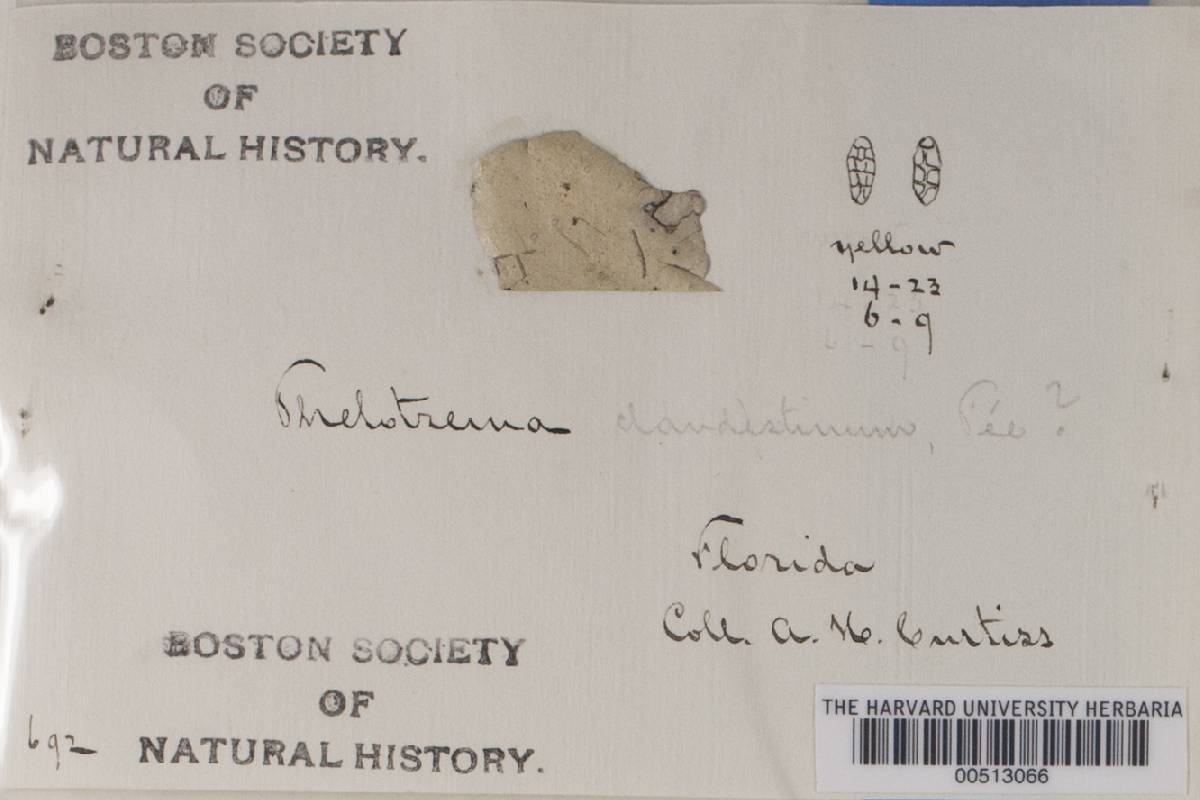 BOSTON SOCIETY
OF
NATURAL HISTORY.
yellow
14-23
6-9
14-23
6-9
Thelotrema clandestinum, Fée?
Florida
Coll. A. H. Curtiss
BOSTON SOCIETY
OF
NATURAL HISTORY.
692
THE HARVARD UNIVERSITY HERBARIA
00513066